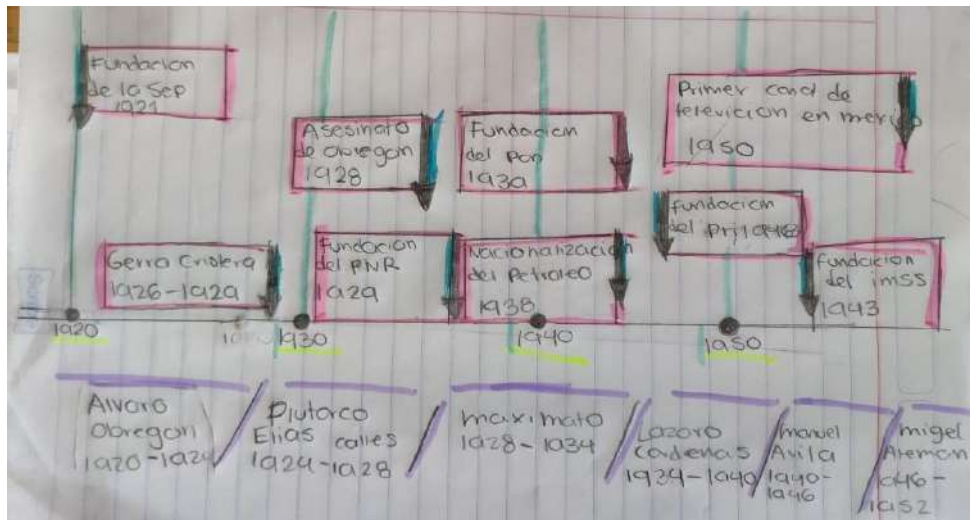 Fundacion
de la Sep
1921
Asesinato
de obregon
1928
Fundacion
del pan
1939
Primer canal de
televicion en mexico
1950
Gerra Cristera
1926-1929
fundacion
del PNR
1929
Nacionalización
del Petroleo
1938
fundacion
del pri 1946
fundacion
del imss
1943
1920
1930
1940
1950
Alvaro
Obregon
1920-1924
Plutarco
Elias calles
1924-1928
maximato
1928-1934
Lazaro
cadenas
1934-1940
manuel
Avila
1940-
1946
migel
Aleman
1946-
1952